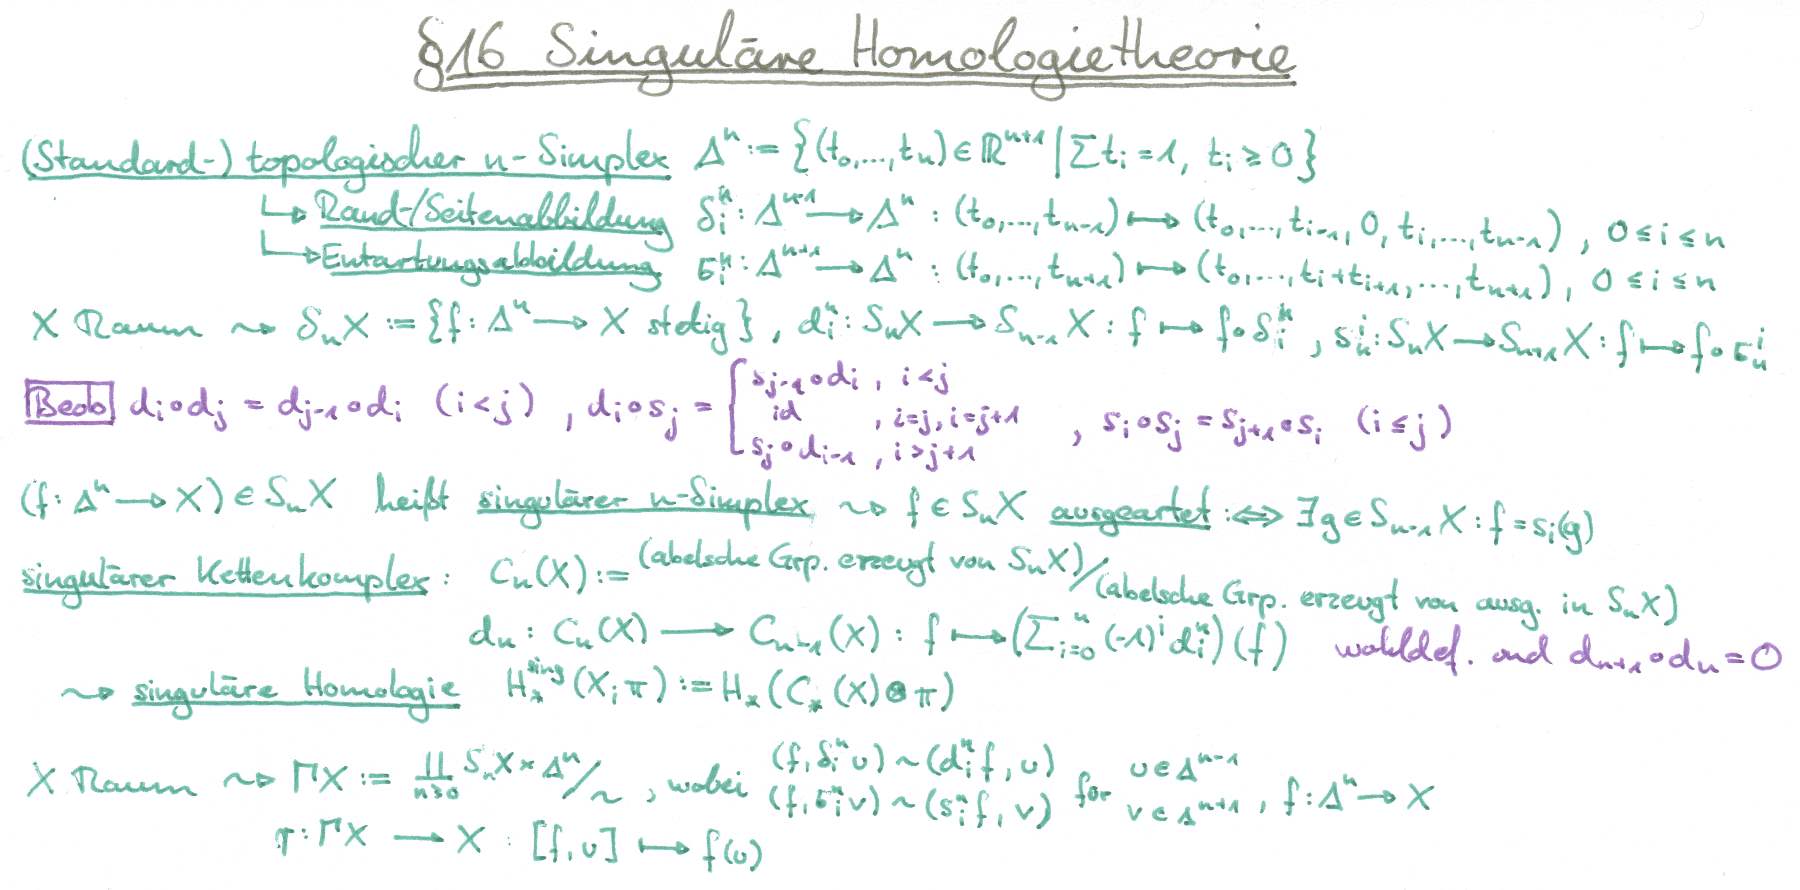 §16 Singuläre Homologietheorie
(Standard-) topologischer n-Simplex Δⁿ := {(t₀,...,tₙ) ∈ ℝⁿ⁺¹ | Σtᵢ = 1, tᵢ ≥ 0}
↳ Rand-/Seitenabbildung δᵢⁿ: Δⁿ⁻¹ → Δⁿ : (t₀,...,tₙ₋₁) ↦ (t₀,...,tᵢ₋₁, 0, tᵢ,...,tₙ₋₁), 0 ≤ i ≤ n
↳ Entartungsabbildung σᵢⁿ: Δⁿ⁺¹ → Δⁿ : (t₀,...,tₙ₊₁) ↦ (t₀,...,tᵢ+tᵢ₊₁,...,tₙ₊₁), 0 ≤ i ≤ n
X Raum ⇝ SₙX := {f: Δⁿ → X stetig}, dᵢⁿ: SₙX → Sₙ₋₁X : f ↦ f∘δᵢⁿ, sₙⁱ: SₙX → Sₙ₊₁X : f ↦ f∘σₙⁱ
Beob dᵢ∘dⱼ = dⱼ₋₁∘dᵢ (i<j), dᵢ∘sⱼ = { sⱼ₋₁∘dᵢ, i<j
id, i=j, i=j+1
sⱼ∘dᵢ₋₁, i>j+1 , sᵢ∘sⱼ = sⱼ₊₁∘sᵢ (i≤j)
(f: Δⁿ → X) ∈ SₙX heißt singulärer n-Simplex ⇝ f ∈ SₙX ausgeartet :⇔ ∃g ∈ Sₙ₋₁X : f = sᵢ(g)
singulärer Kettenkomplex: Cₙ(X) := (abelsche Grp. erzeugt von SₙX)/(abelsche Grp. erzeugt von ausg. in SₙX)
dₙ: Cₙ(X) → Cₙ₋₁(X) : f ↦ (Σᵢ₌₀ⁿ (-1)ⁱ dᵢⁿ)(f) wohldef. und dₙ₊₁∘dₙ = 0
⇝ singuläre Homologie H⁎ˢⁱⁿᵍ(X; π) := H⁎(C⁎(X) ⊗ π)
X Raum ⇝ ΓX := ∐ₙ≥₀ SₙX × Δⁿ/∼, wobei (f, δᵢⁿu) ∼ (dᵢⁿf, u) für u ∈ Δⁿ⁻¹
(f, σᵢⁿv) ∼ (sᵢⁿf, v) v ∈ Δⁿ⁺¹, f: Δⁿ → X
γ: ΓX → X : [f, u] ↦ f(u)